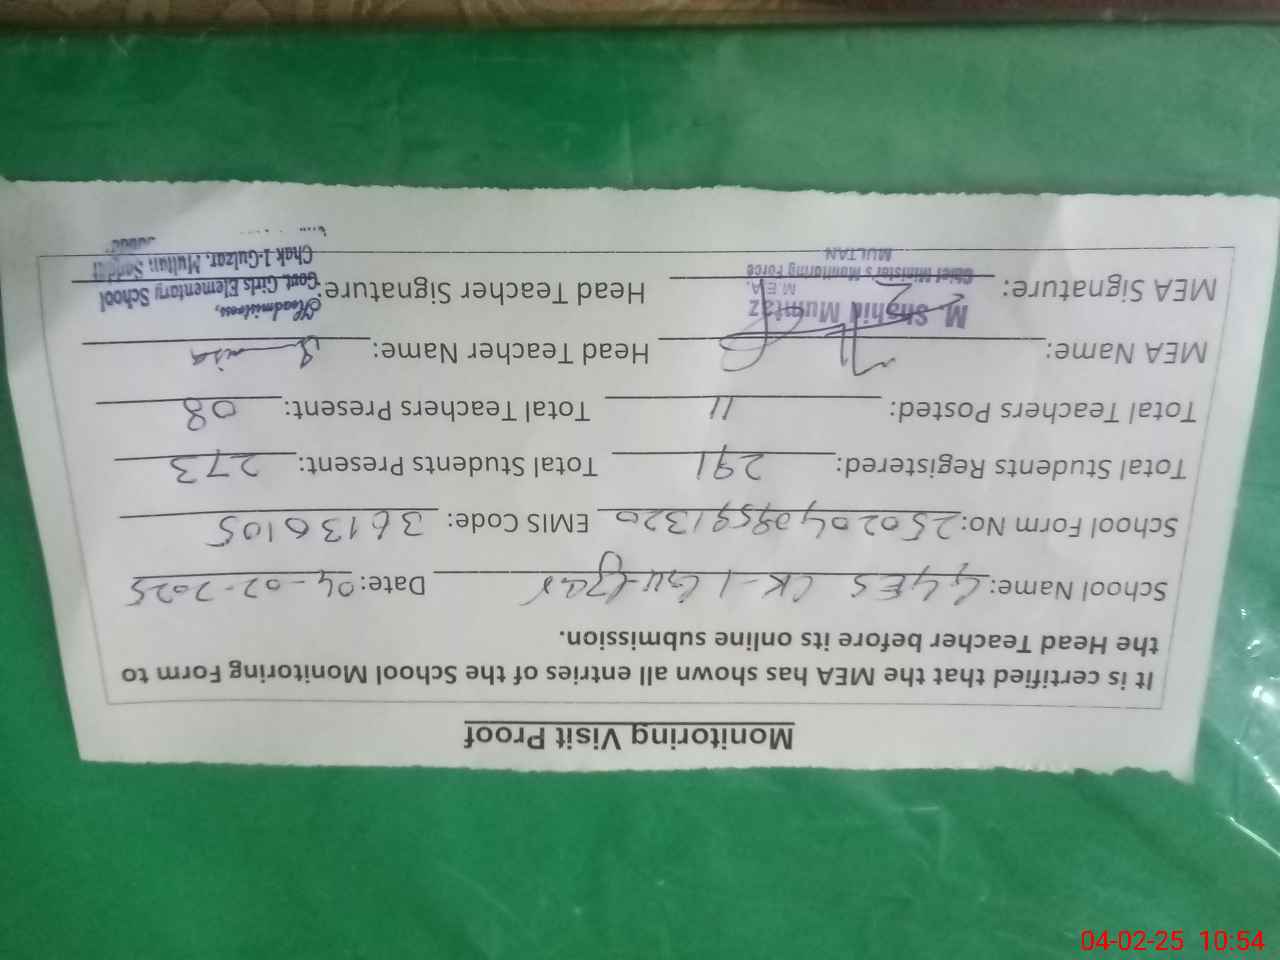 Monitoring Visit Proof
It is certified that the MEA has shown all entries of the School Monitoring Form to
the Head Teacher before its online submission.
School Name: GGES CK-1 Gulzar Date: 04-02-2025
School Form No: EMIS Code: 36130105
Total Students Registered: 291 Total Students Present: 273
Total Teachers Posted: 11 Total Teachers Present: 08
MEA Name: Head Teacher Name:
M. Shahid Mumtaz
M.E.A.
Chief Minister's Monitoring Force
MULTAN
MEA Signature: Head Teacher Signature:
Headmistress,
Govt. Girls Elementary School
Chak 1-Gulzar, Multan Saddar
04-02-25 10:54